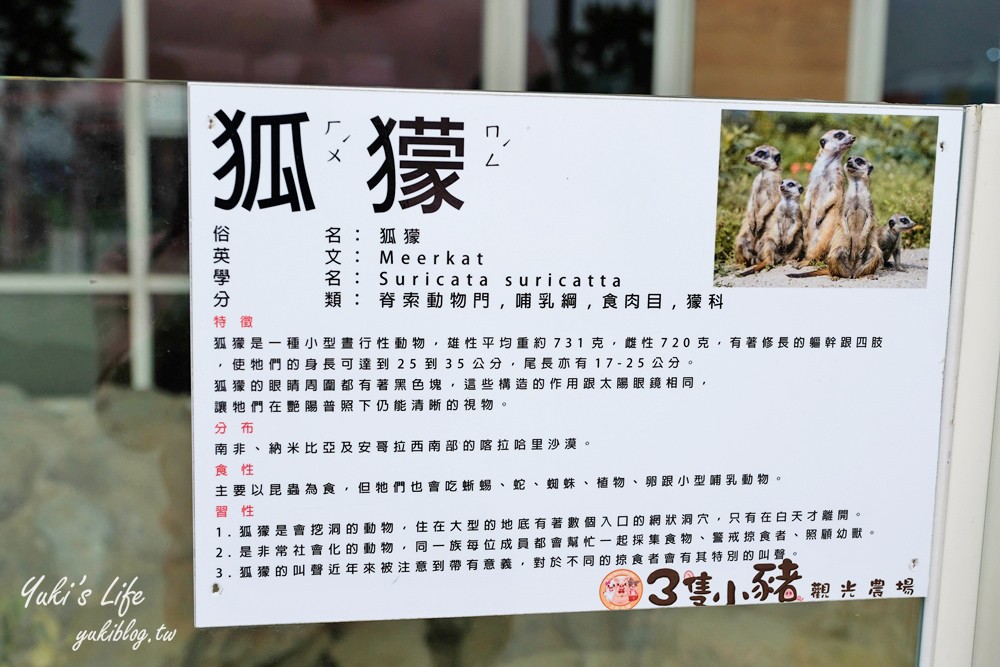 狐 ㄏㄨˊ 獴 ㄇㄥˊ
俗名：狐獴
英文：Meerkat
學名：Suricata suricatta
分類：脊索動物門，哺乳綱，食肉目，獴科
特徵
狐獴是一種小型晝行性動物，雄性平均重約731克，雌性720克，有著修長的軀幹跟四肢
，使牠們的身長可達到25到35公分，尾長亦有17-25公分。
狐獴的眼睛周圍都有著黑色塊，這些構造的作用跟太陽眼鏡相同，
讓牠們在艷陽普照下仍能清晰的視物。
分布
南非、納米比亞及安哥拉西南部的喀拉哈里沙漠。
食性
主要以昆蟲為食，但牠們也會吃蜥蜴、蛇、蜘蛛、植物、卵跟小型哺乳動物。
習性
1. 狐獴是會挖洞的動物，住在大型的地底有著數個入口的網狀洞穴，只有在白天才離開。
2. 是非常社會化的動物，同一族每位成員都會幫忙一起採集食物、警戒掠食者、照顧幼獸。
3. 狐獴的叫聲近年來被注意到帶有意義，對於不同的掠食者會有其特別的叫聲。
3隻小豬 觀光農場
Yuki's Life
yukiblog.tw